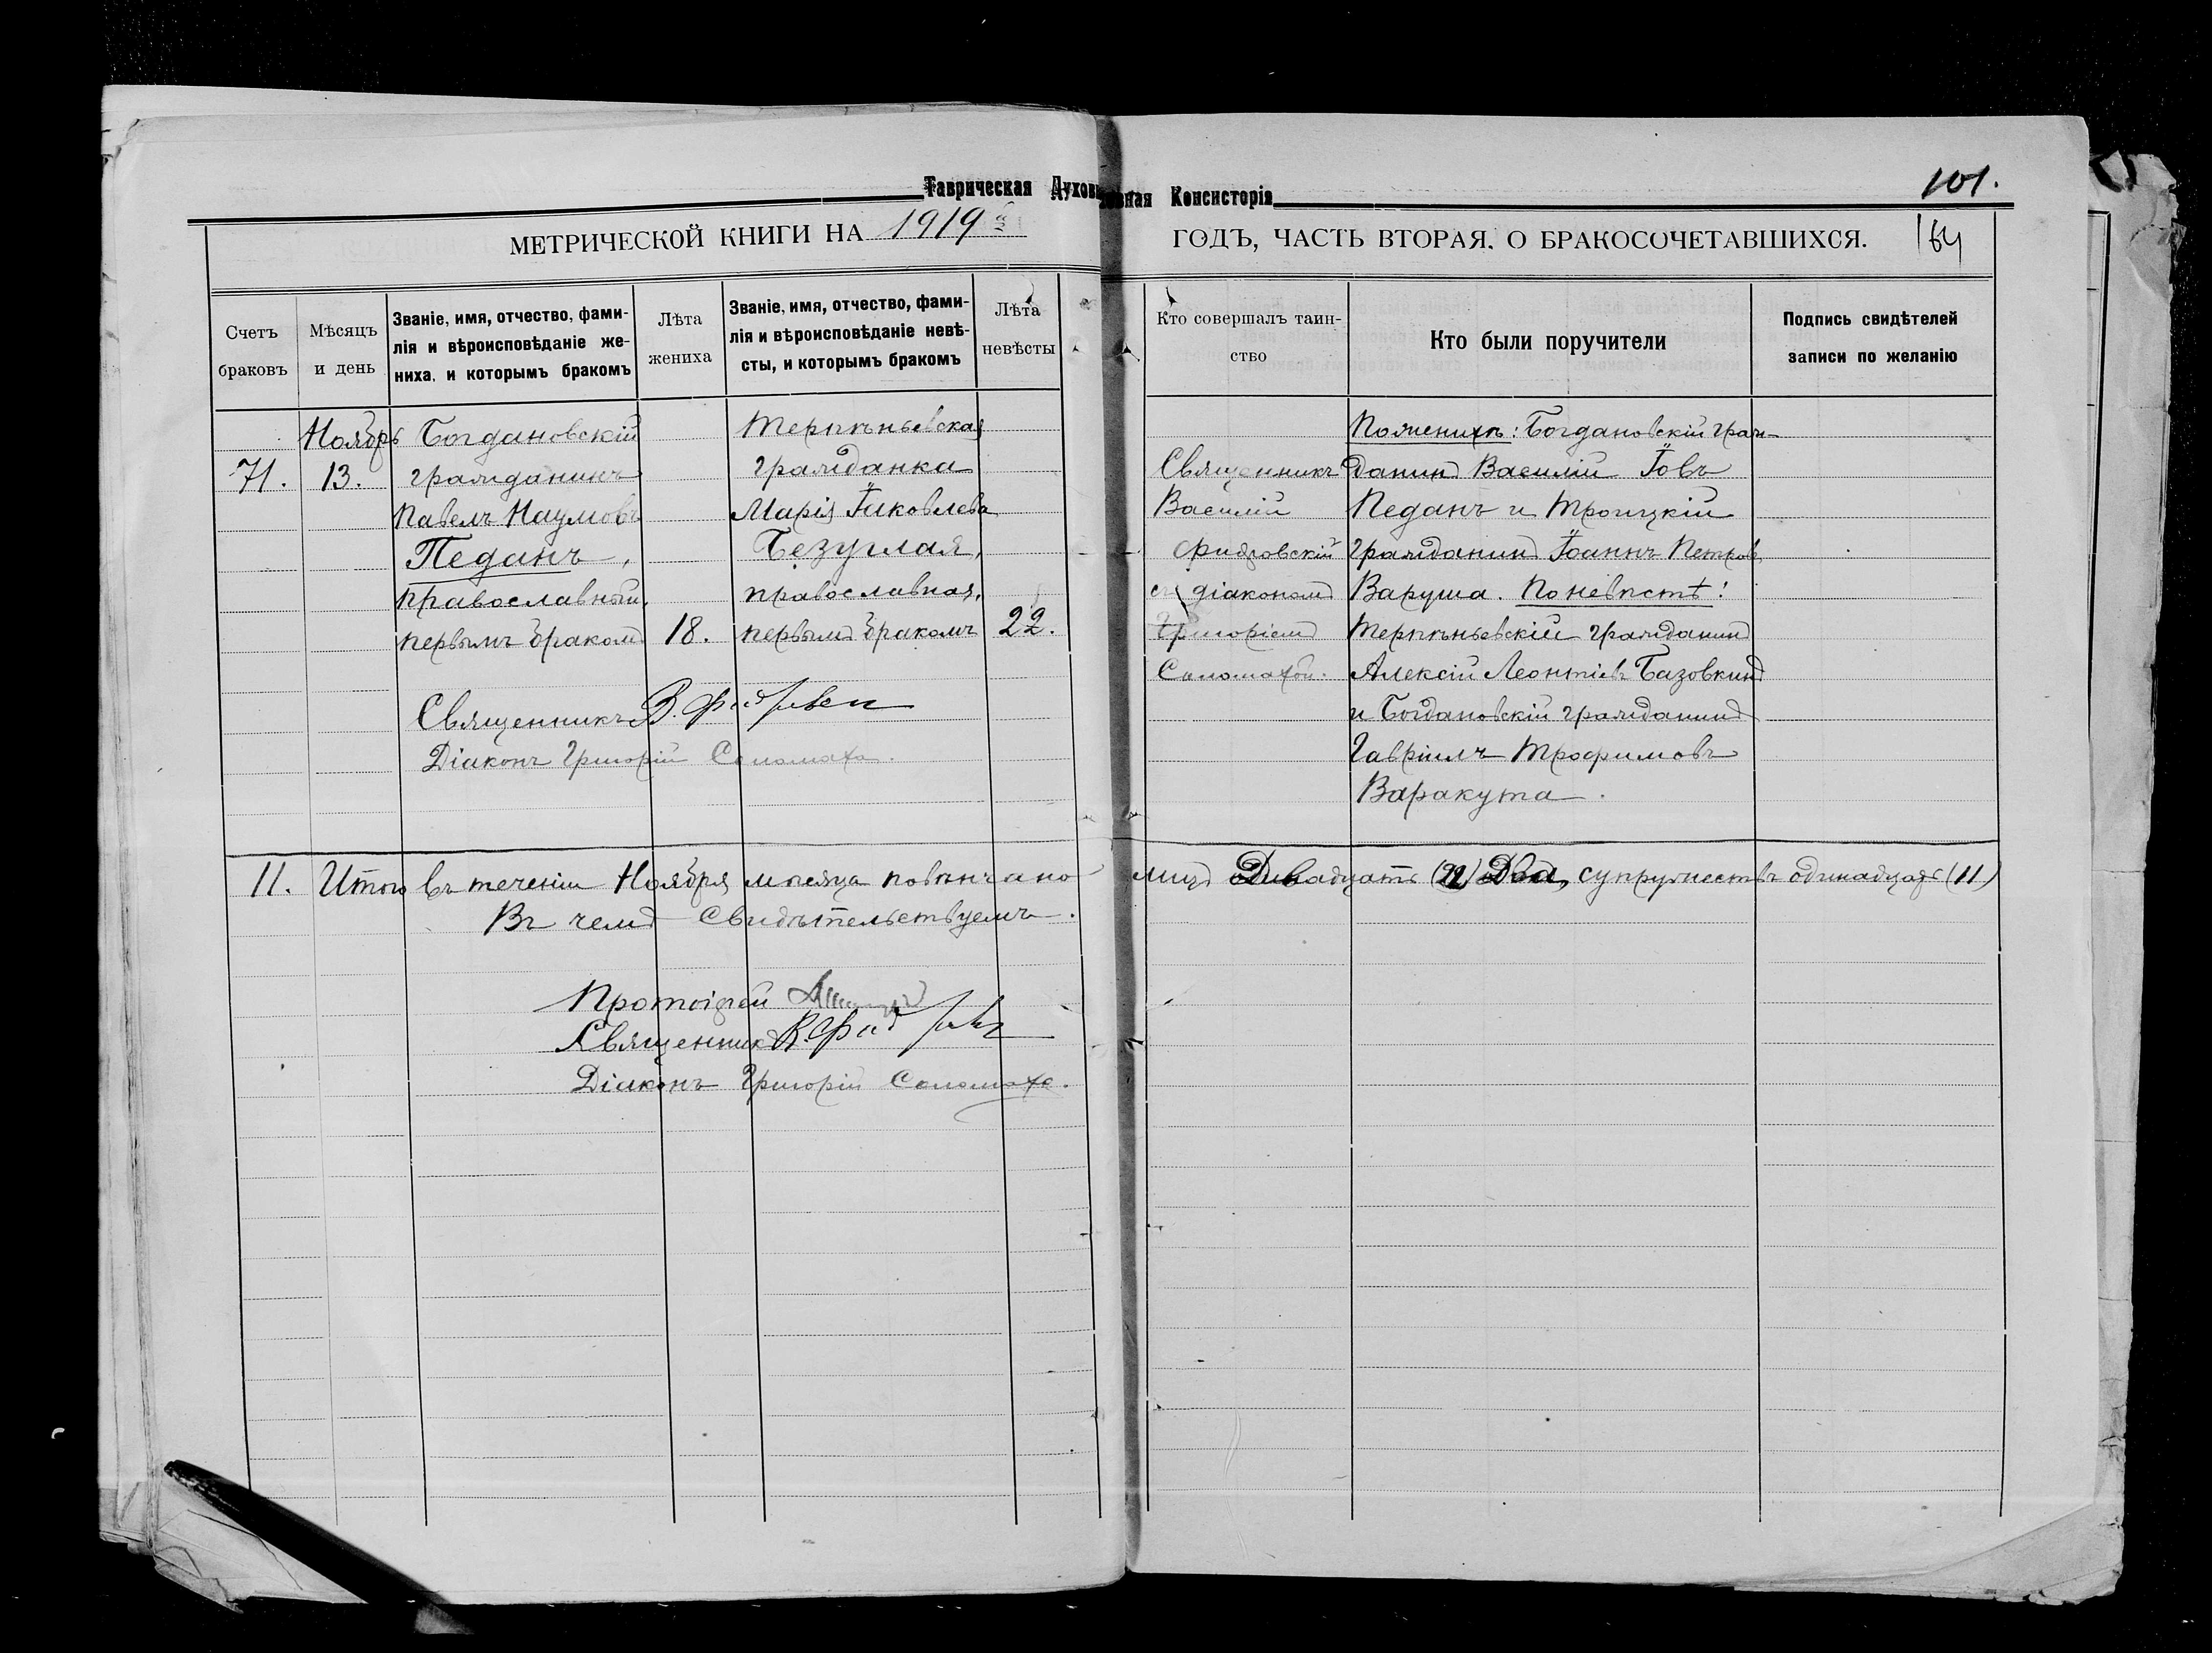 Таврическая Духовная Консисторія
101.
МЕТРИЧЕСКОЙ КНИГИ НА 1919й ГОДЪ, ЧАСТЬ ВТОРАЯ, О БРАКОСОЧЕТАВШИХСЯ.
164
Счетъ
браковъ
Мѣсяцъ
и день
Званіе, имя, отчество, фами-
лія и вѣроисповѣданіе же-
ниха, и которымъ бракомъ
Лѣта
жениха
Званіе, имя, отчество, фами-
лія и вѣроисповѣданіе невѣ-
сты, и которымъ бракомъ
Лѣта
невѣсты
Кто совершалъ таин-
ство
Кто были поручители
Подпись свидѣтелей
записи по желанію
71.
Ноябрь
13.
Богдановскій
гражданинъ
Павелъ Наумовъ
Педанъ,
православный,
первымъ бракомъ
18.
Терпѣньевская
гражданка
Марія Іяковлева
Безуглая,
православная,
первымъ бракомъ
22.
Священникъ
Василій
съ діакономъ
Григоріемъ
Соломахой.
По женихѣ: Богдановскій граж-
данинъ Василій Іовъ
Педанъ и Троицкій
гражданинъ Іоаннъ Петровъ
Варуша. По невѣстѣ:
Терпѣньевскій гражданинъ
Алексій Леонтіевъ Базовкинъ
и Богдановскій гражданинъ
Гавріилъ Трофимовъ
Варакута.
Священникъ В.
Діаконъ Григорій Соломаха.
11. Итого въ теченіи Ноября мѣсяца повѣнчано лицъ Двадцать (22) Два, супружествъ одинадцать (11)
Въ чемъ свидѣтельствуемъ.
Протоіерей
Священникъ В.
Діаконъ Григорій Соломаха.